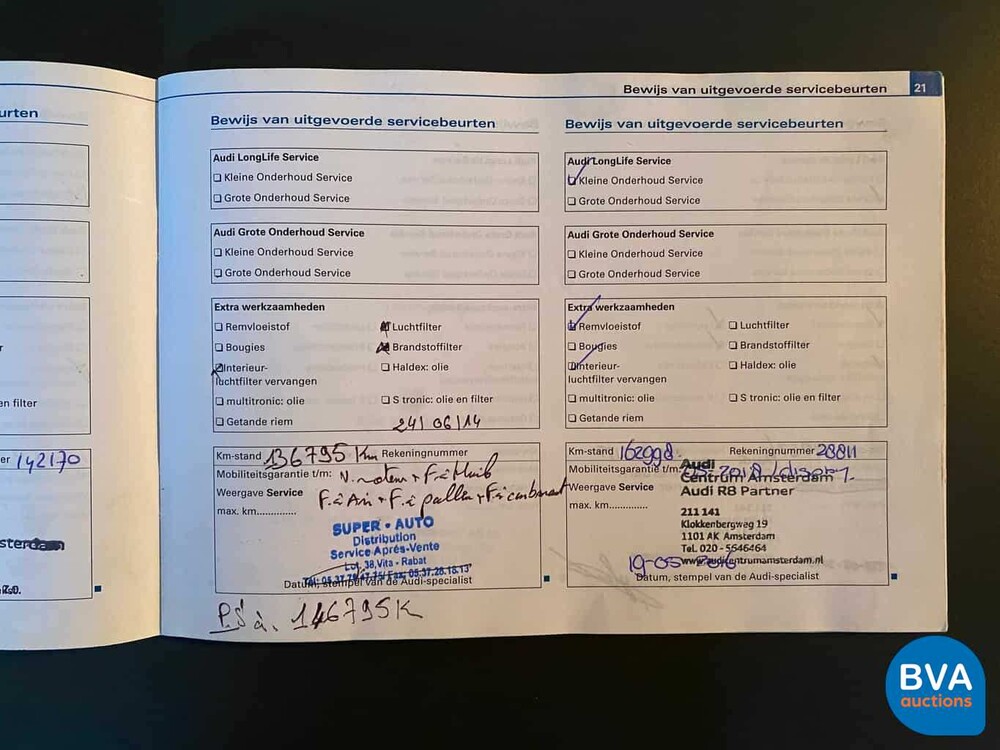 urten
er 142170
en filter
sterdam
Bewijs van uitgevoerde servicebeurten
21
Bewijs van uitgevoerde servicebeurten
Audi LongLife Service
Kleine Onderhoud Service
Grote Onderhoud Service
Audi Grote Onderhoud Service
Kleine Onderhoud Service
Grote Onderhoud Service
Extra werkzaamheden
Remvloeistof
Luchtfilter
Bougies
Brandstoffilter
Interieur-
luchtfilter vervangen
Haldex: olie
multitronic: olie
S tronic: olie en filter
Getande riem
24/06/14
Km-stand 136795 Km Rekeningnummer
Mobiliteitsgarantie t/m:
Weergave Service
max. km.............
SUPER • AUTO
Distribution
Service Après-Vente
Lot, 38, Vita - Rabat
Datum, stempel van de Audi-specialist
à. 146795K
Bewijs van uitgevoerde servicebeurten
Audi LongLife Service
Kleine Onderhoud Service
Grote Onderhoud Service
Audi Grote Onderhoud Service
Kleine Onderhoud Service
Grote Onderhoud Service
Extra werkzaamheden
Remvloeistof
Luchtfilter
Bougies
Brandstoffilter
Interieur-
luchtfilter vervangen
Haldex: olie
multitronic: olie
S tronic: olie en filter
Getande riem
Km-stand Rekeningnummer 28811
Mobiliteitsgarantie t/m:
Weergave Service
max. km.............
Audi
Centrum Amsterdam
Audi R8 Partner
211 141
Klokkenbergweg 19
1101 AK Amsterdam
Tel. 020 - 5646464
www.audicentrumamsterdam.nl
Datum, stempel van de Audi-specialist
BVA
auctions